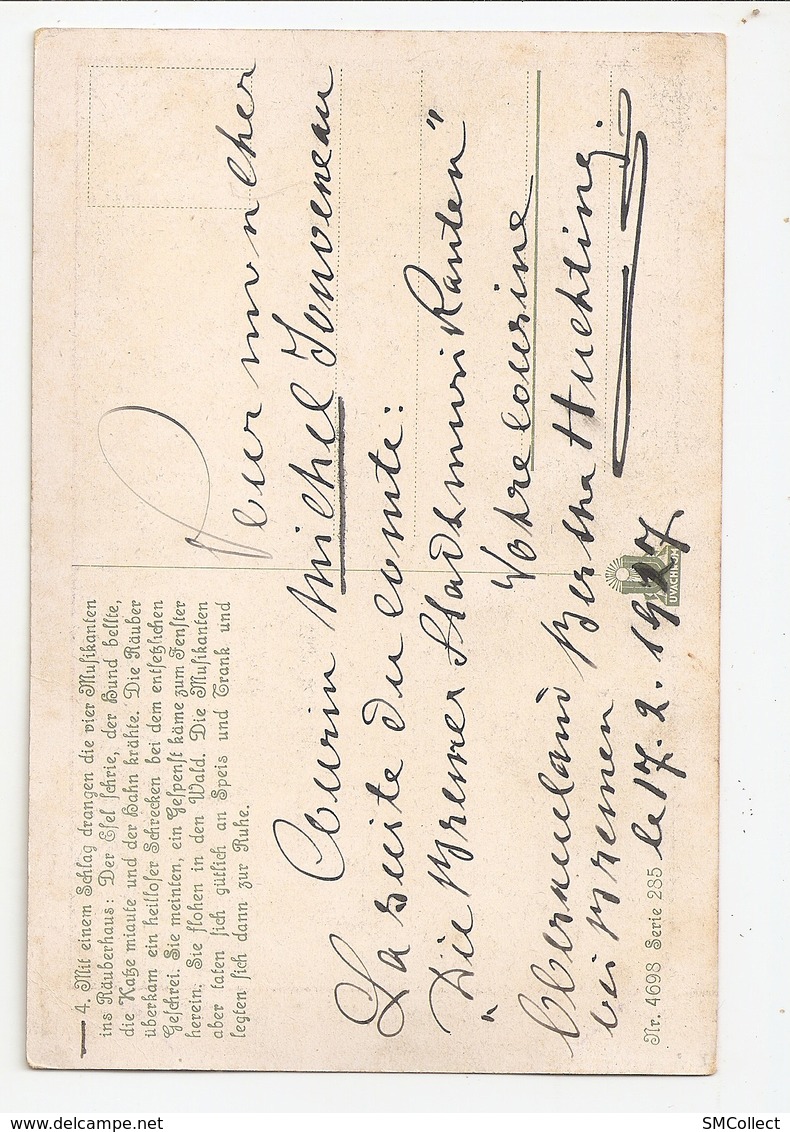 4. Mit einem Schlag drangen die vier Muſikanten
ins Räuberhaus: Der Eſel ſchrie, der Hund bellte,
die Katze miaute und der Hahn krähte. Die Räuber
überkam ein heilloſer Schrecken bei dem entſetzlichen
Geſchrei. Sie meinten, ein Geſpenſt käme zum Fenſter
herein. Sie flohen in den Wald. Die Muſikanten
aber taten ſich gütlich an Speis und Trank und
legten ſich dann zur Ruhe.
Pour mon cher
Cousin Michel Jouveneau
La suite du comte:
"Die Bremer Stadtmusikanten"
Votre cousine
Oberneuland Bertha Huchting.
bei Bremen
le 17. 2. 1927.
Nr. 4698 Serie 285
UVACHROM
SMCollect